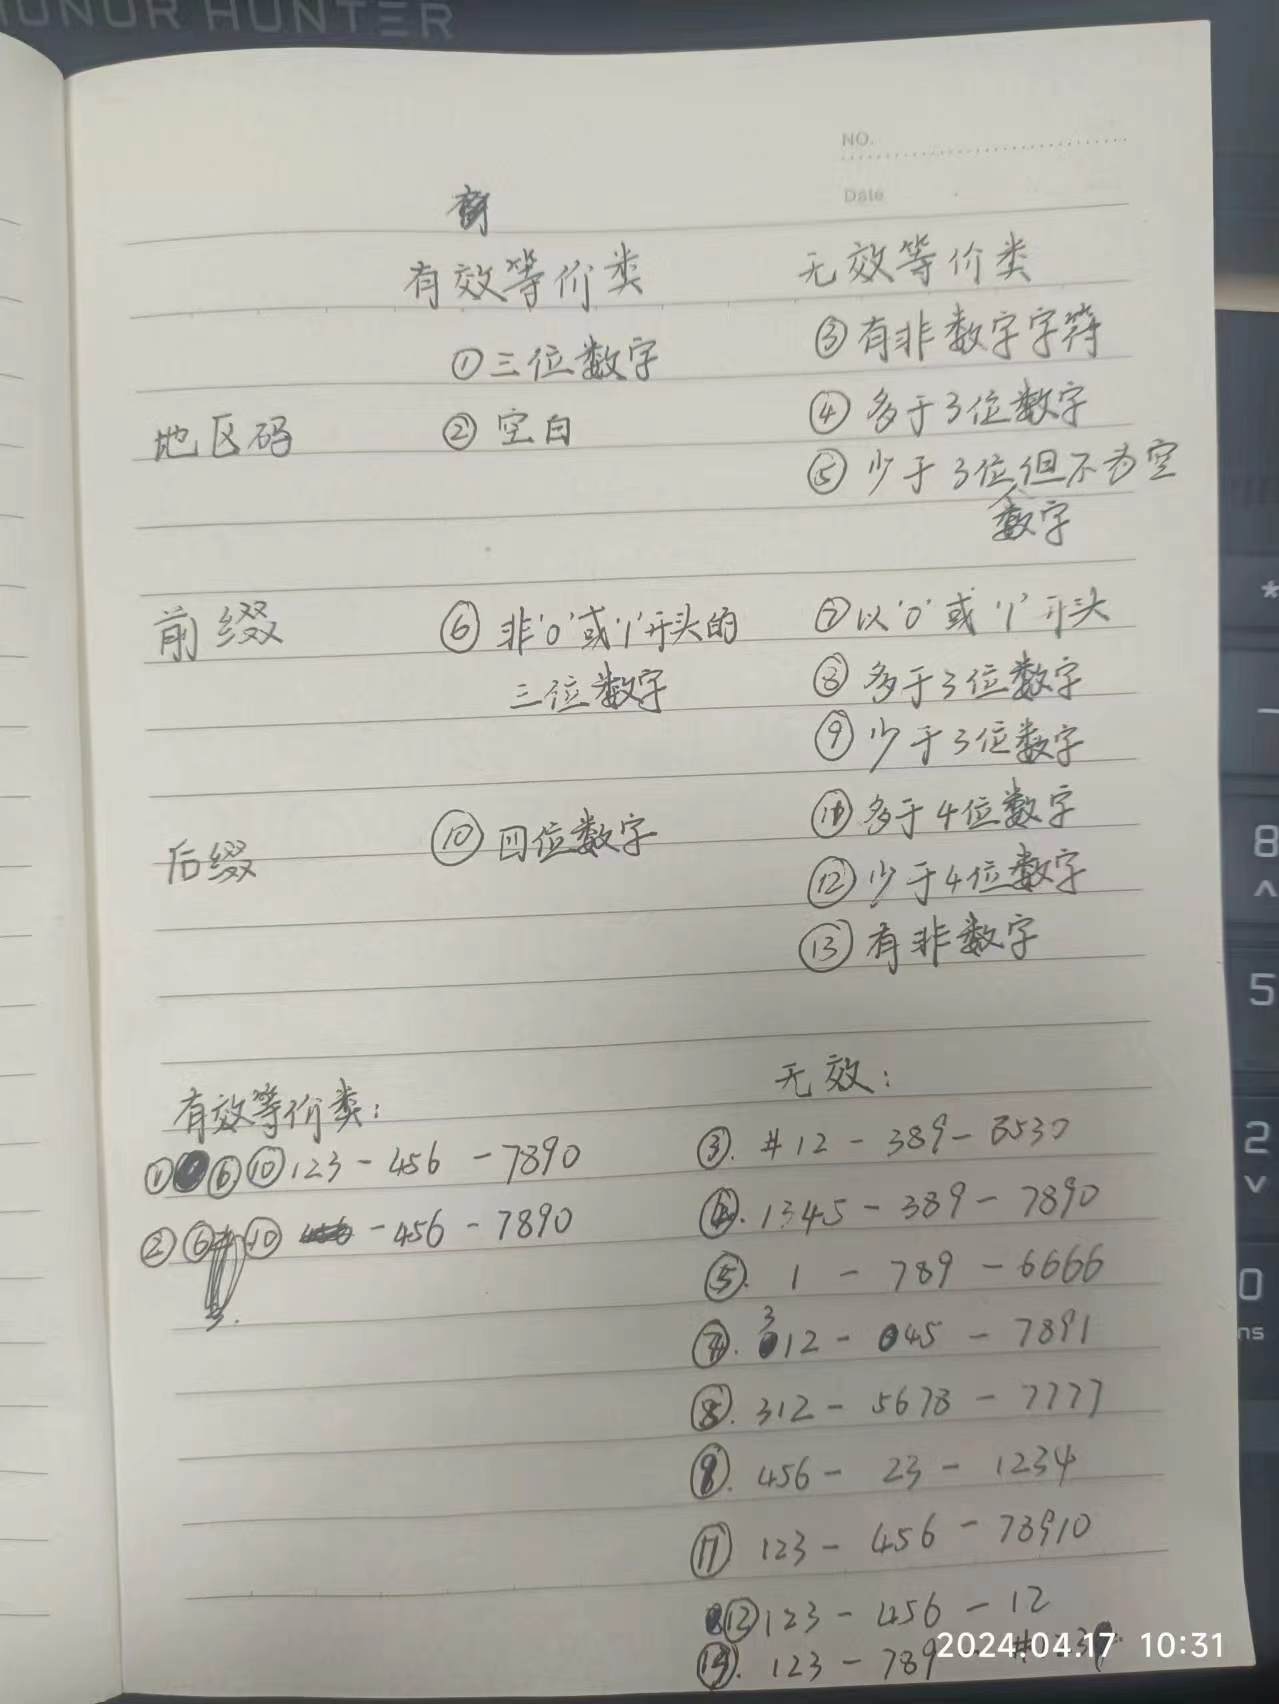 HONOR HUNTER
NO.
Date
有效等价类 无效等价类
①三位数字 ③有非数字字符
地区码 ②空白 ④多于3位数字
⑤少于3位数字但不为空
前缀 ⑥非'0'或'1'开头的 ⑦以'0'或'1'开头
三位数字 ⑧多于3位数字
⑨少于3位数字
后缀 ⑩四位数字 ⑪多于4位数字
⑫少于4位数字
⑬有非数字
有效等价类: 无效:
①⑥⑩123-456-7890 ③. #12-389-8530
②⑥⑩ -456-7890 ④. 1345-389-7890
⑤. 1-789-6666
⑦. 312-045-7891
⑧. 312-5678-7777
⑨. 456-23-1234
⑪ 123-456-78910
⑫123-456-12
⑬. 123-789
2024.04.17 10:31
*
8
5
2
0
ns